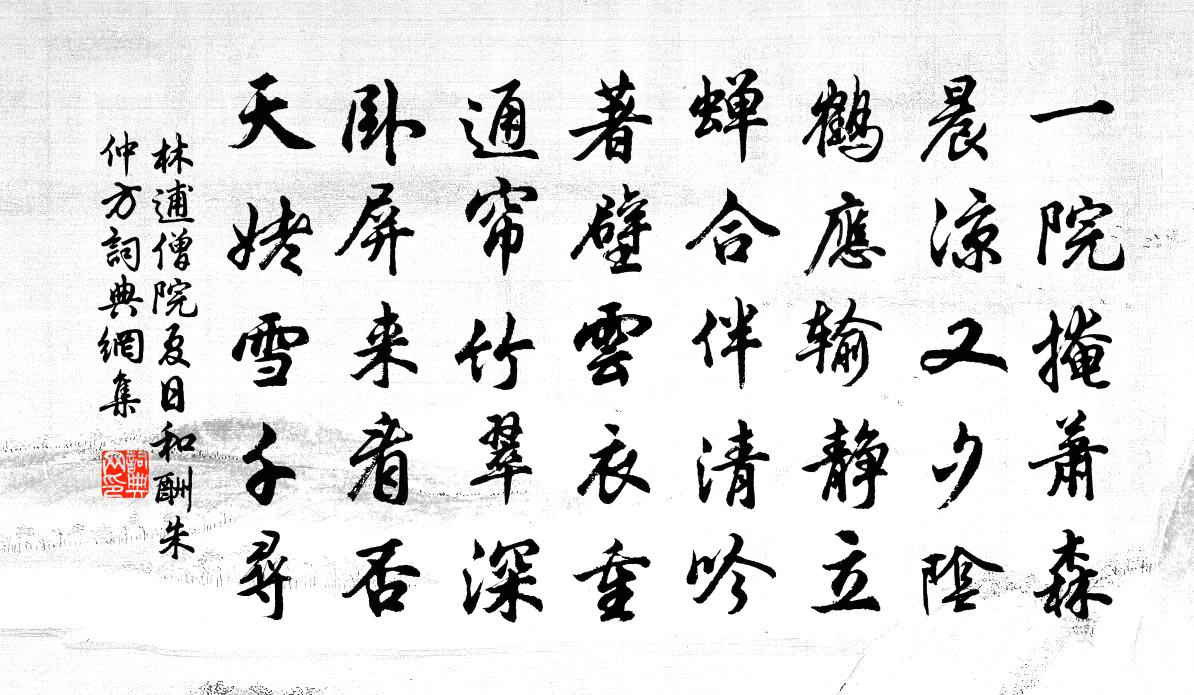 一院掩萧森
晨涼又夕陰
鶴應输静立
蝉合伴清吟
著壁雲衣重
通帘竹翠深
卧屏来看否
天姥雪千尋
林逋僧院夏日和酬朱
仲方詞典網集